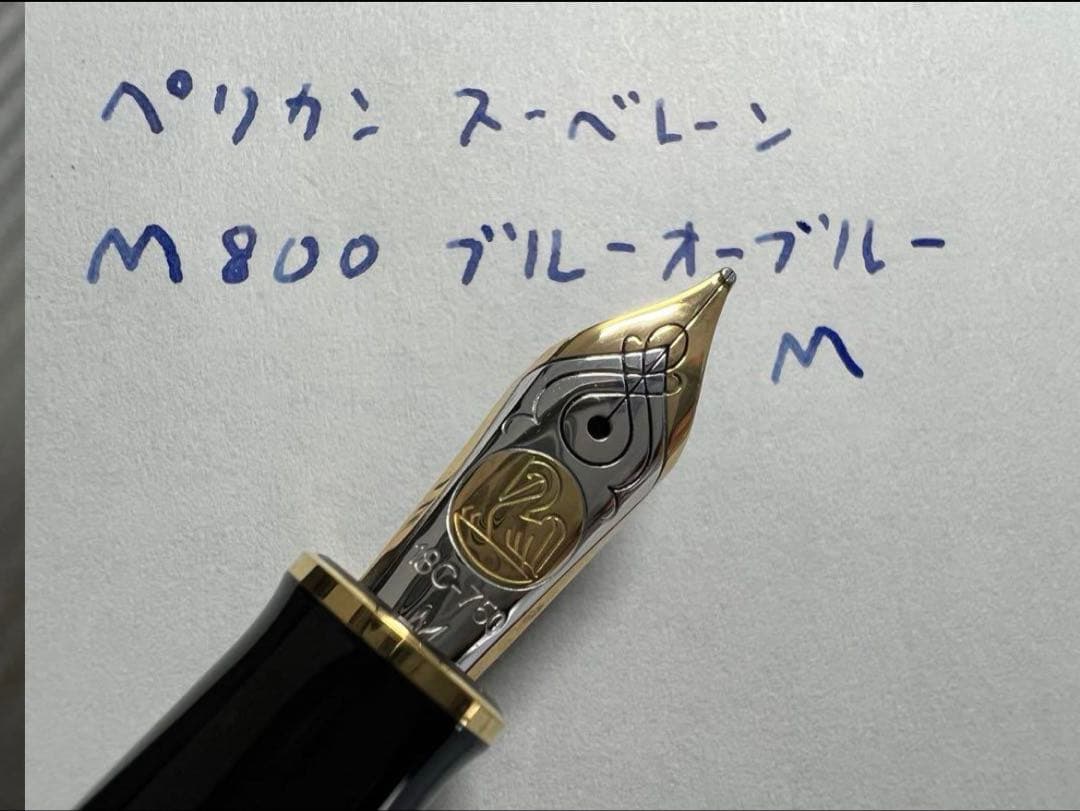 ペリカン スーベレーン
M800 ブルーオーブルー
M
18C-750
M